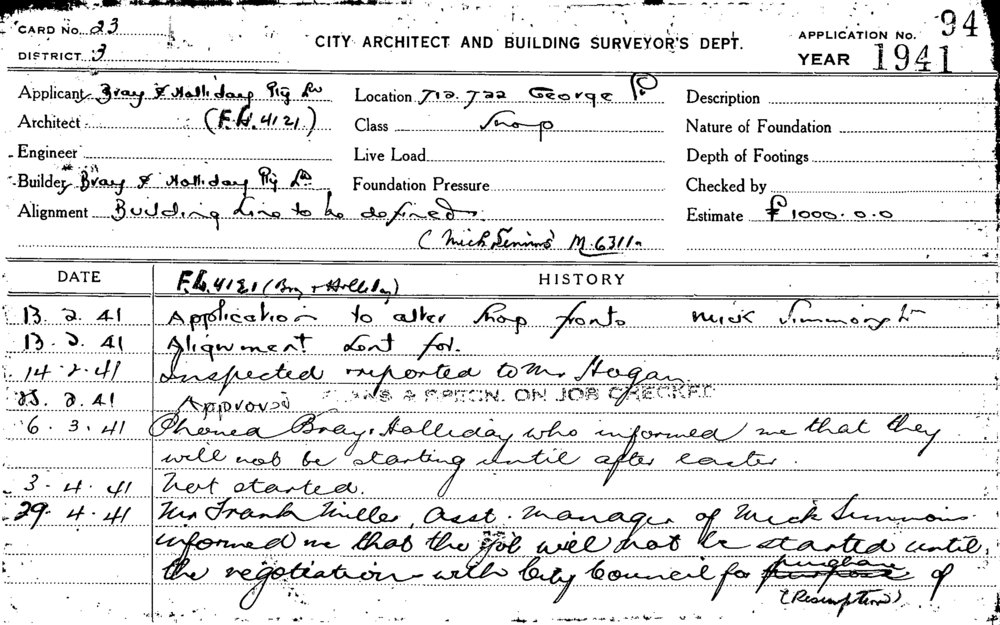 CARD No. 23
DISTRICT. 3
CITY ARCHITECT AND BUILDING SURVEYOR'S DEPT.
APPLICATION No. 94
YEAR 1941
Applicant Bray & Holliday Pty Ltd
Location 712.722 George St
Description
Architect (F.W.4121.)
Class Shop
Nature of Foundation
Engineer
Live Load
Depth of Footings
Builder Bray & Holliday Pty Ltd
Foundation Pressure
Checked by
Alignment Building Line to be defined.
Estimate £1000.0.0
(Mick Simmons M.6311
DATE
F.W.4121 (Bray & Holliday)
HISTORY
13.2.41 Application to alter shop fronts Mick Simmons Ltd
13.2.41 Alignment sent for.
14.2.41 Inspected & reported to Mr Hogan
25.2.41 Approved PLANS & SPECN. ON JOB CHECKED
6.3.41 Phoned Bray & Holliday who informed me that they
will not be starting until after easter.
3.4.41 Not started.
29.4.41 Mr Frank Miller, Asst. Manager of Mick Simmons
informed me that the job will not be started until
the negotiation with City Council for purchase of
(Resumption)